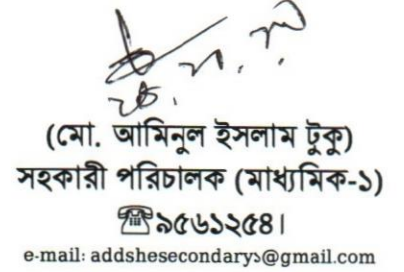 (মো. আমিনুল ইসলাম টুকু)
সহকারী পরিচালক (মাধ্যমিক-১)
☎৯৫৬১২৫৪।
e-mail: addshesecondary১@gmail.com